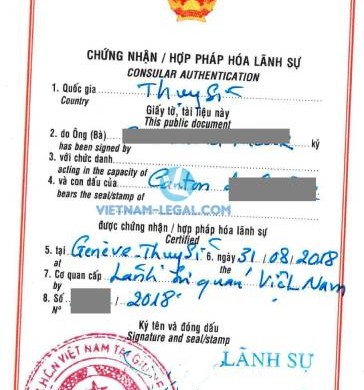 CHỨNG NHẬN / HỢP PHÁP HÓA LÃNH SỰ
CONSULAR AUTHENTICATION
1. Quốc gia Thụy Sĩ
Country
Giấy tờ, tài liệu này
This public document
2. do Ông (Bà) ký
has been signed by
3. với chức danh
acting in the capacity of
4. và con dấu của Canton de
bears the seal/stamp of
VIETNAM-LEGAL.COM
được chứng nhận / hợp pháp hóa lãnh sự
Certified
5. tại Genève - Thụy Sĩ 6. ngày 31/08/2018
at the
7. Cơ quan cấp Lãnh sự quán Việt Nam
by
8. Số / 2018
N°
Ký tên và đóng dấu
Signature and seal/stamp
LÃNH SỰ
H.C.N VIỆT NAM TẠI